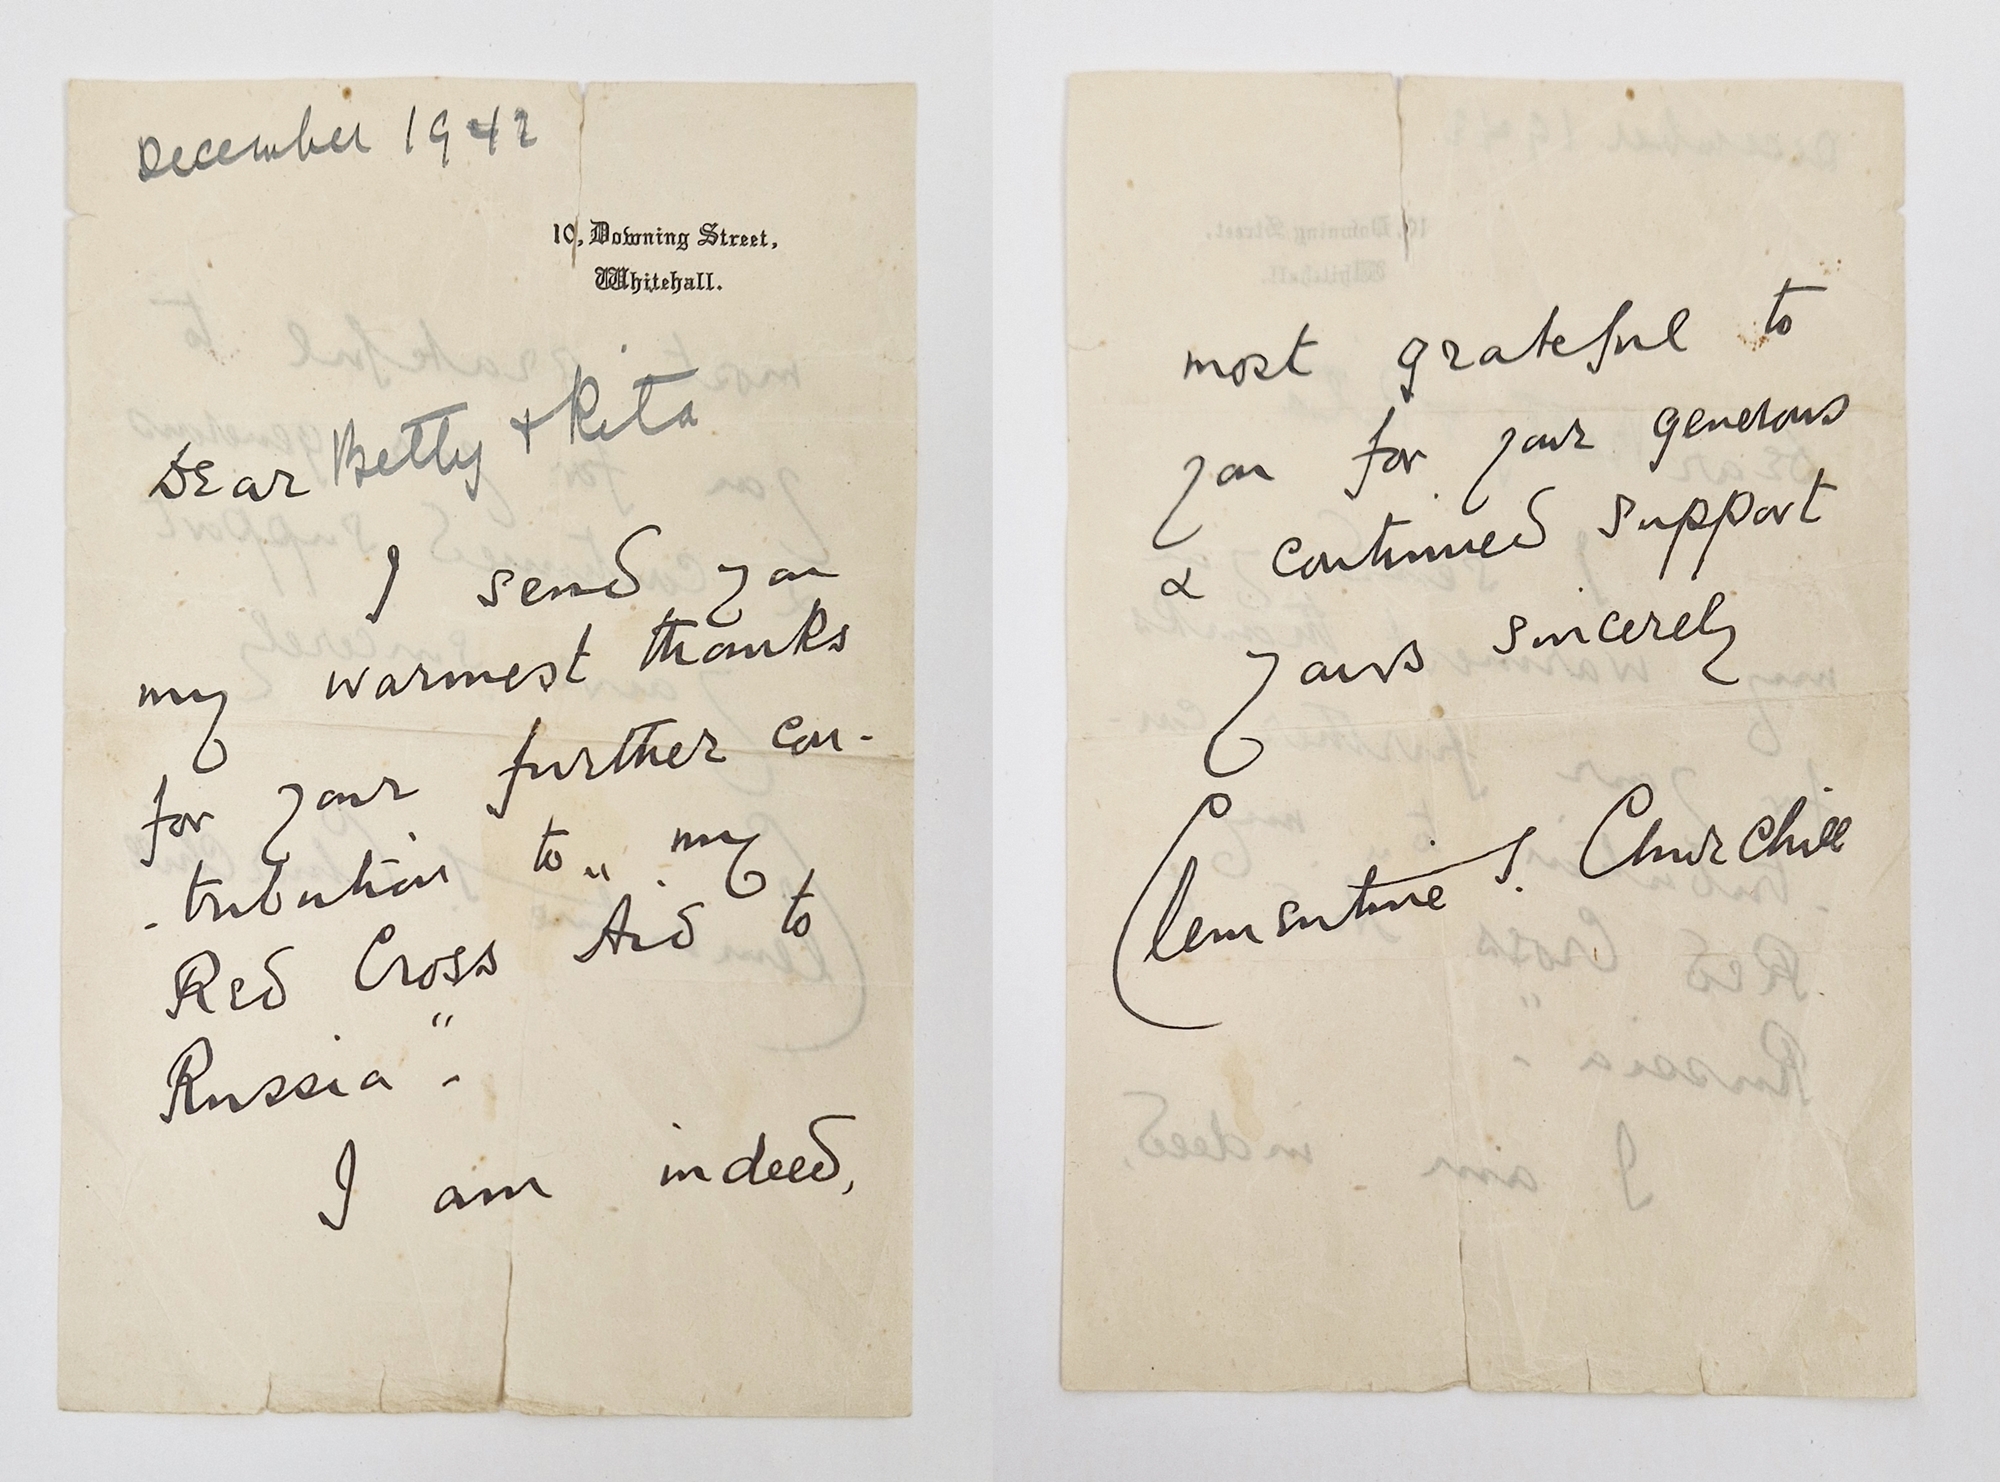 December 1942
10, Downing Street,
Whitehall.
Dear Betty + Rita
I send you
my warmest thanks
for your further con-
-tribution to "my
Red Cross Aid to
Russia".
I am indeed,
most grateful to
you for your generous
& continued support
yours sincerely
Clementine S. Churchill